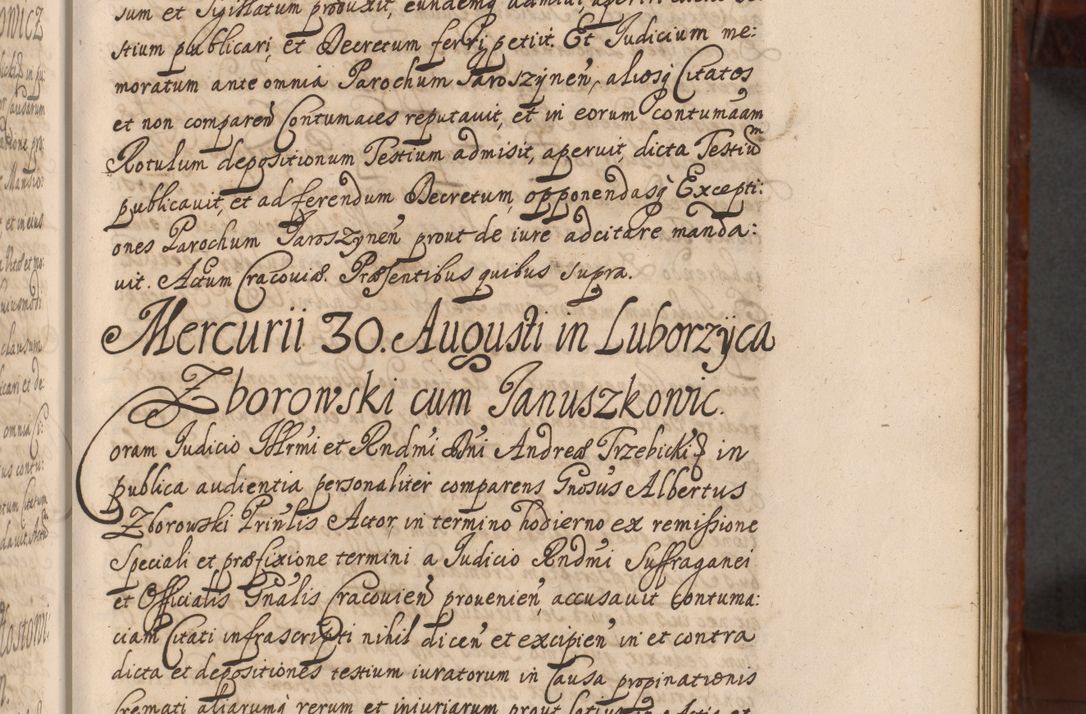 sum et Sigillatum produxit, eundemq́
stium publicari et Decretum ferri petiit. Et Judicium me:
moratum ante omnia Parochum Jaroszyneñ, aliosq́ Citatos
et non compareñ Contumaces reputavit, et in eorum Contumãam
Rotulum depositionum Testium admisit, aperuit, dicta Testiũm
publicavit, et ad ferendum Decretum, opponendasq́ Excepti:
ones Parochum Jaroszyneñ prout de iure adcitare manda:
vit. Actum Cracoviæ. Præsentibus quibus supra.
Mercurii 30. Augusti in Luborzÿca
Zborowski cum Januszkowic.
Coram Judicio Illr̃mi et Rndm̃i Dñi Andreæ Trzebicki in
publica audientia personaliter comparens Gñosus Albertus
Zborowski Prinl̃is Actor, in termino hodierno ex remissione
Speciali et præfixione termini a Judicio Rndm̃i Suffraganei
et Officialis Gñalis Cracovieñ provenieñ, accusavit Contuma:
ciam Citati infrascripti nihil diceñ et excipieñ in et contra
dicta et depositiones testium iuratorum in Causa propinationis
Cremati aliarumq́ rerum et iniuriarum prout latius